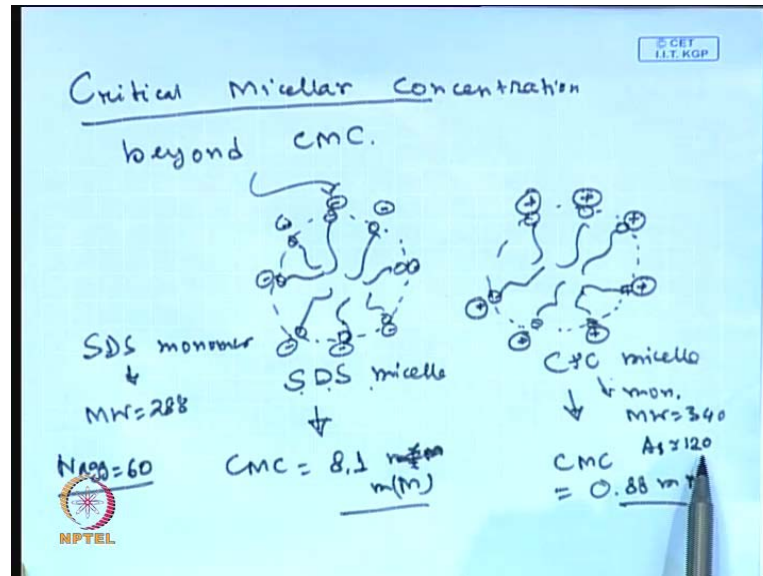 © CET
I.I.T. KGP
Critical Micellar Concentration
beyond CMC.
SDS monomer
MW=288
Nagg=60
SDS micelle
CMC = 8.1
m(M)
CPC micelle
mon.
MW=340
Ag≈120
CMC
= 0.88 m
NPTEL